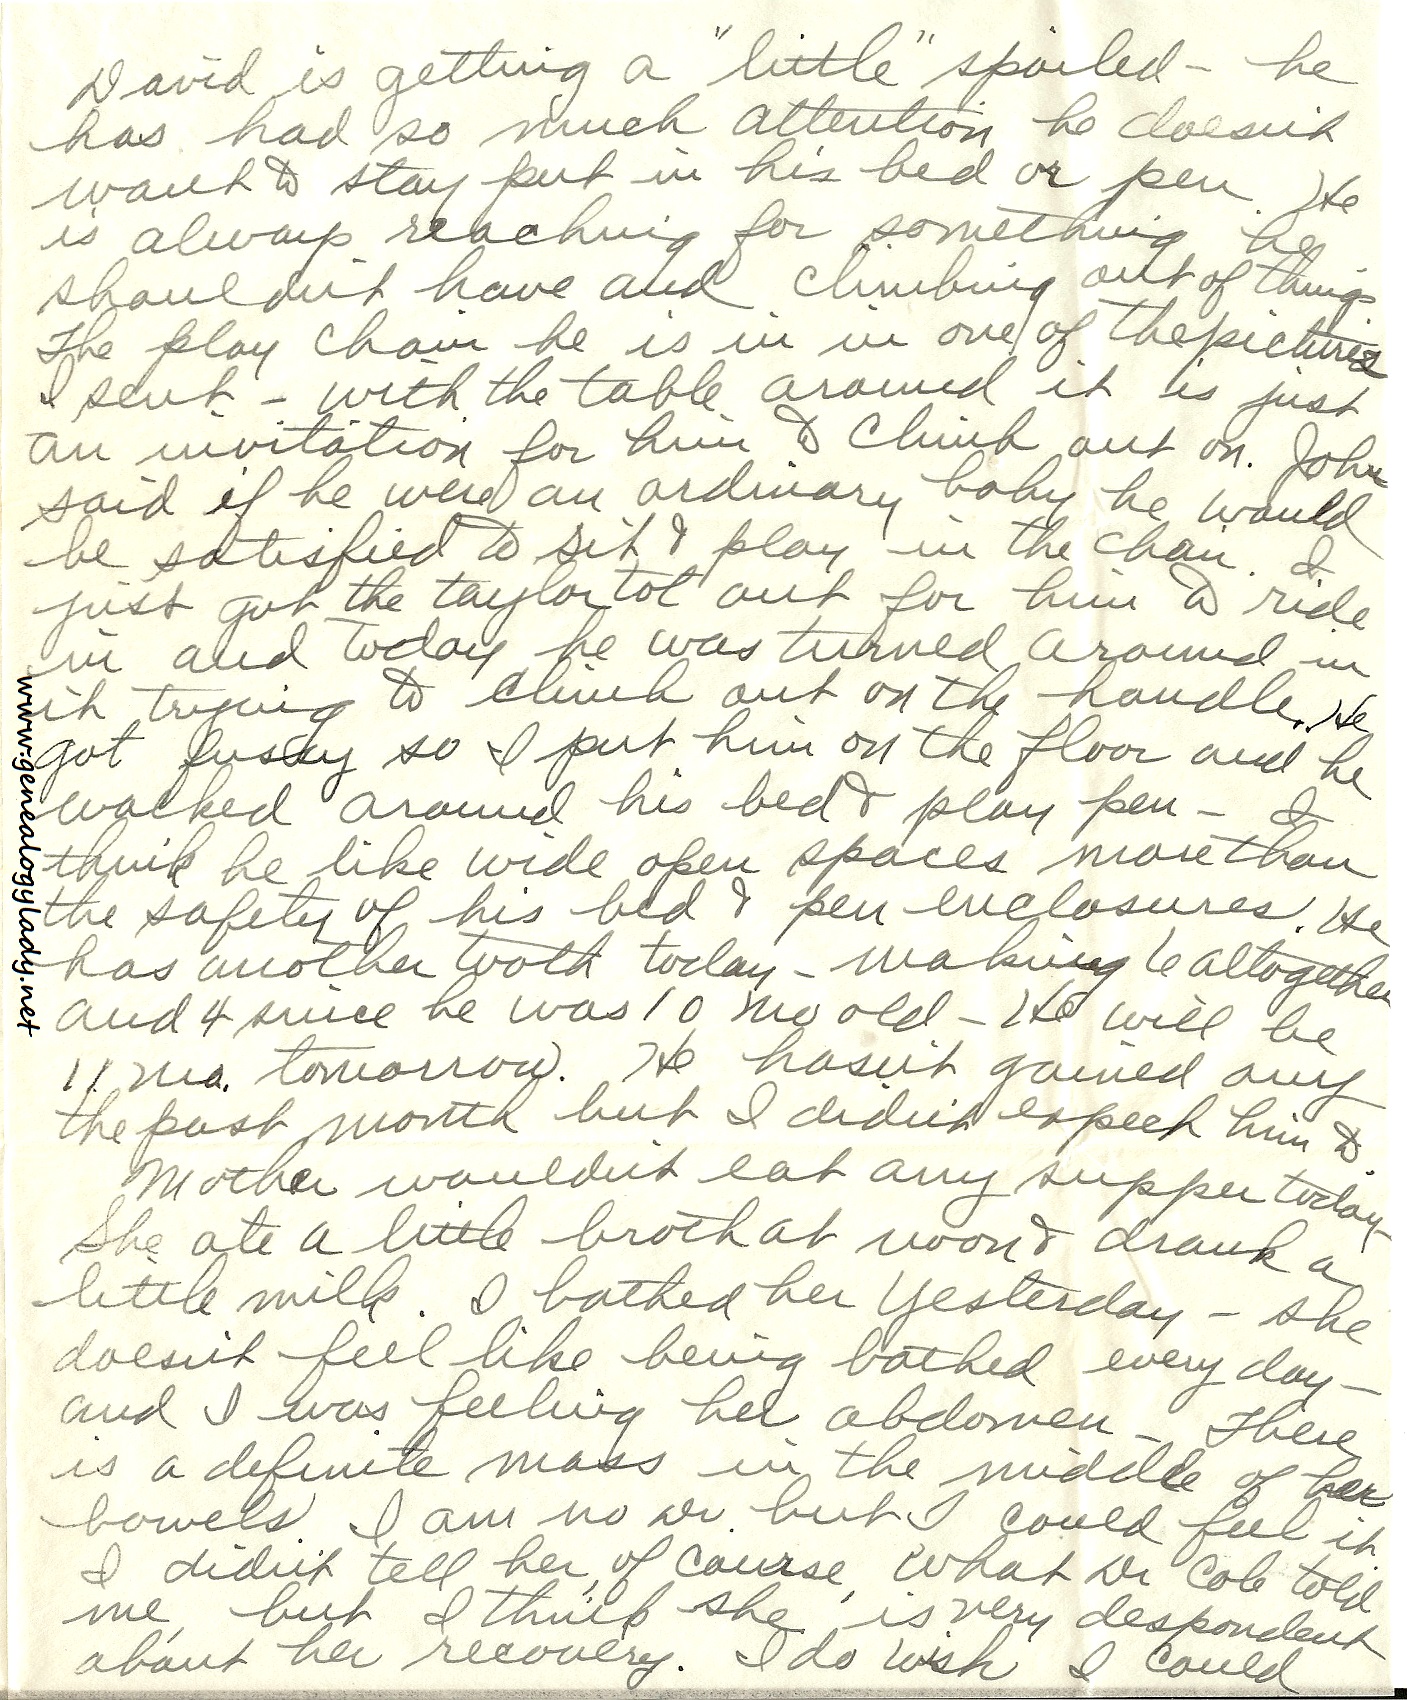 David is getting a "little" spoiled - he
has had so much attention he doesn't
want to stay put in his bed or pen. He
is always reaching for something he
shouldn't have and climbing out of things
The play chair he is in in one of the pictures
I sent - with the table around it is just
an invitation for him to climb out on. John
said if he were an ordinary baby he would
be satisfied to sit & play in the chair. I
just got the taylor tot out for him to ride
in and today he was turned around in
it trying to climb out on the handle. He
got fussy so I put him on the floor and he
walked around his bed & play pen - I
think he like wide open spaces more than
the safety of his bed & pen enclosures. He
has another tooth today - making 6 altogether
and 4 since he was 10 mo old - He will be
11 mo. tomorrow. He hasn't gained any
the past month but I didn't expect him to.
Mother wouldn't eat any supper today
She ate a little broth at noon & drank a
little milk. I bathed her yesterday - she
doesn't feel like being bathed every day -
and I was feeling her abdomen - There
is a definite mass in the middle of her
bowels. I am no Dr. but I could feel it
I didn't tell her, of course, what Dr Cole told
me, but I think she is very despondent
about her recovery. I do wish I could
www.genealogylady.net